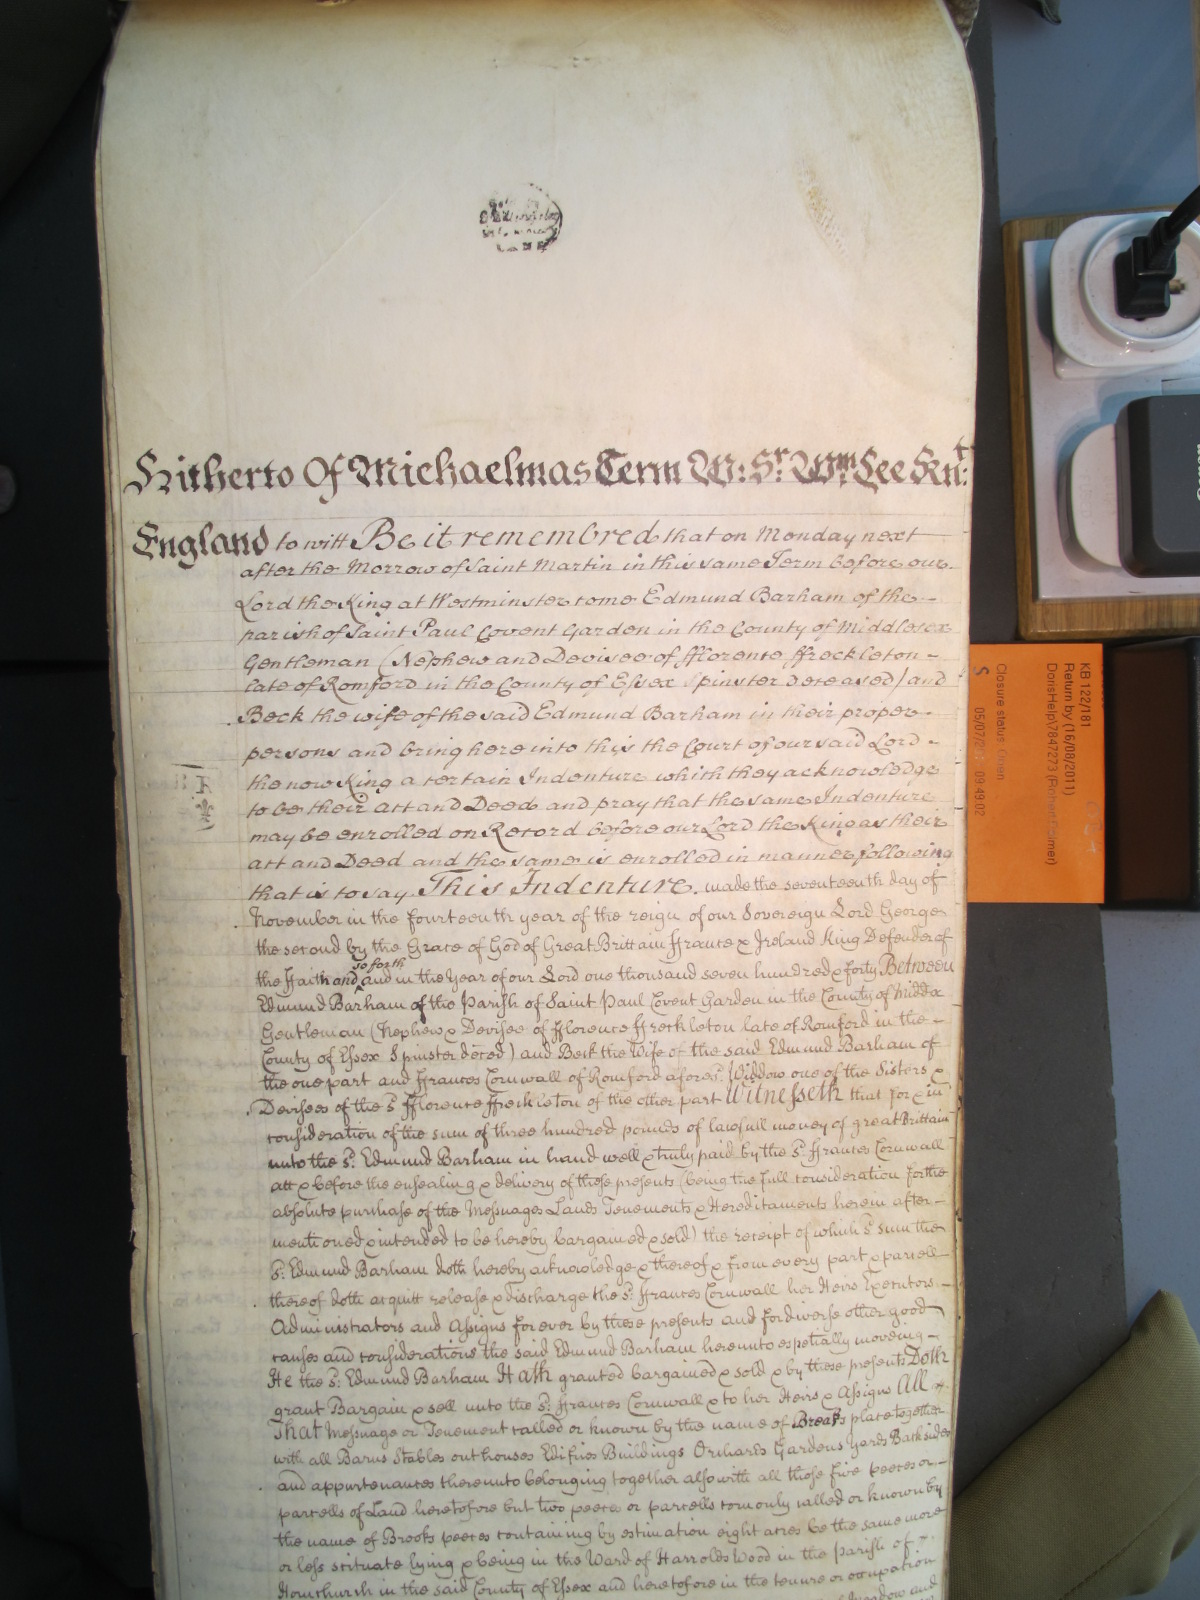 Hitherto Of Michaelmas Term W: Sr. Wm. Lee Knt:
England to witt Be it remembred that on Monday next
after the Morrow of Saint Martin in this same Term before our
Lord the King at Westminster come Edmund Barham of the
parish of Saint Paul Covent Garden in the County of Middlesex
Gentleman (Nephew and Devisee of fflorence ffreckleton
late of Romford in the County of Essex Spinster Deceased) and
Beck the wife of the said Edmund Barham in their proper
persons and bring here into this the Court of our said Lord
the now King a certain Indenture which they acknowledge
to be their act and Deed and pray that the same Indenture
may be enrolled on Record before our Lord the King as their
act and Deed and the same is enrolled in manner following
that is to say This Indenture made the seventeenth day of
November in the fourteenth year of the reign of our Sovereign Lord George
the second by the Grace of God of Great Brittain ffrance & Ireland King Defender of
the ffaith and so forth and in the Year of our Lord one thousand seven hundred & forty Between
Edmund Barham of the Parish of Saint Paul Covent Garden in the County of Middx
Gentleman (Nephew & Devisee of fflorence ffreckleton late of Romford in the
County of Essex Spinster deced) and Beck the Wife of the said Edmund Barham of
the one part and ffrances Cornwall of Romford afores:d Widdow one of the Sisters &
Devisees of the s:d fflorence ffreckleton of the other part Witnesseth that for & in
consideration of the sum of three hundred pounds of lawfull money of great Brittain
unto the s:d Edmund Barham in hand well & truly paid by the s:d ffrances Cornwall
att & before the ensealing & delivery of these presents (being the full consideration for the
absolute purchase of the Messuages Lands Tenements & Hereditaments herein after
mentioned & intended to be hereby bargained & sold) the receipt of which s:d sum the
s:d Edmund Barham doth hereby acknowledge & thereof & from every part & parcell
thereof doth acquitt release & discharge the s:d ffrances Cornwall her Heirs Executors
Administrators and Assigns for ever by these presents and for diverse other good
causes and considerations the said Edmund Barham hereunto espetially moveing
He the s:d Edmund Barham Hath granted bargained & sold & by these presents Doth
grant Bargain & sell unto the s:d ffrances Cornwall & to her Heirs & Assigns All
That Messuage or Tenement called or known by the name of place together
with all Barns Stables outhouses Edifices Buildings Orchards Gardens Yards Backsides
and appurtenances thereunto belonging together also with all those five peeces or
parcells of Land heretofore but two peeces or parcells comonly called or known by
the name of Brooks peeces containing by estimation eight acres be the same more
or less scituate lying & being in the Ward of Harrolds Wood in the parish of
Hornchurch in the said County of Essex and heretofore in the tenure or occupation
KB 122/181
Return by (16/08/2011)
Closure status: Open
05/07/20 09:49:02